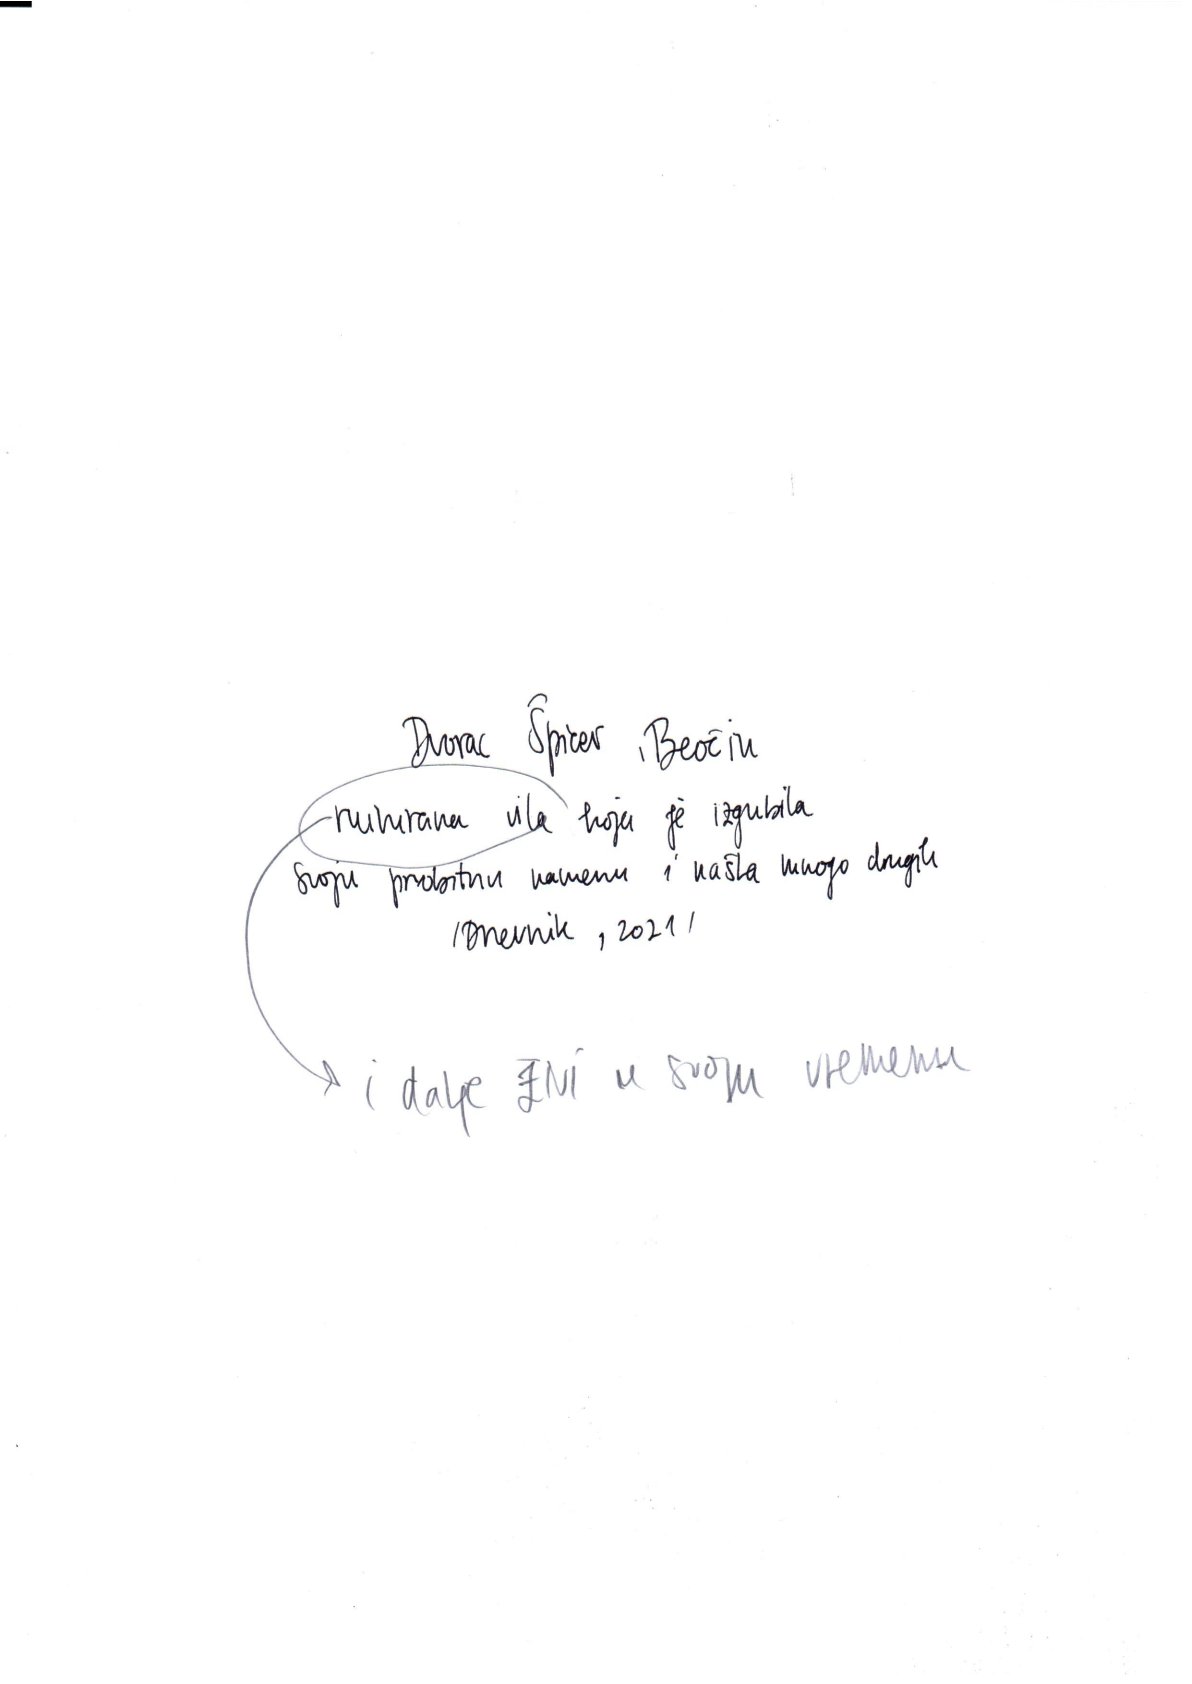 Dvorac Špicer, Beočin
ruinirana vila koja je izgubila
svoju prvobitnu namenu i našla mnogo drugih
/Dnevnik, 2021/
i dalje ŽIVI u svoju vremenu